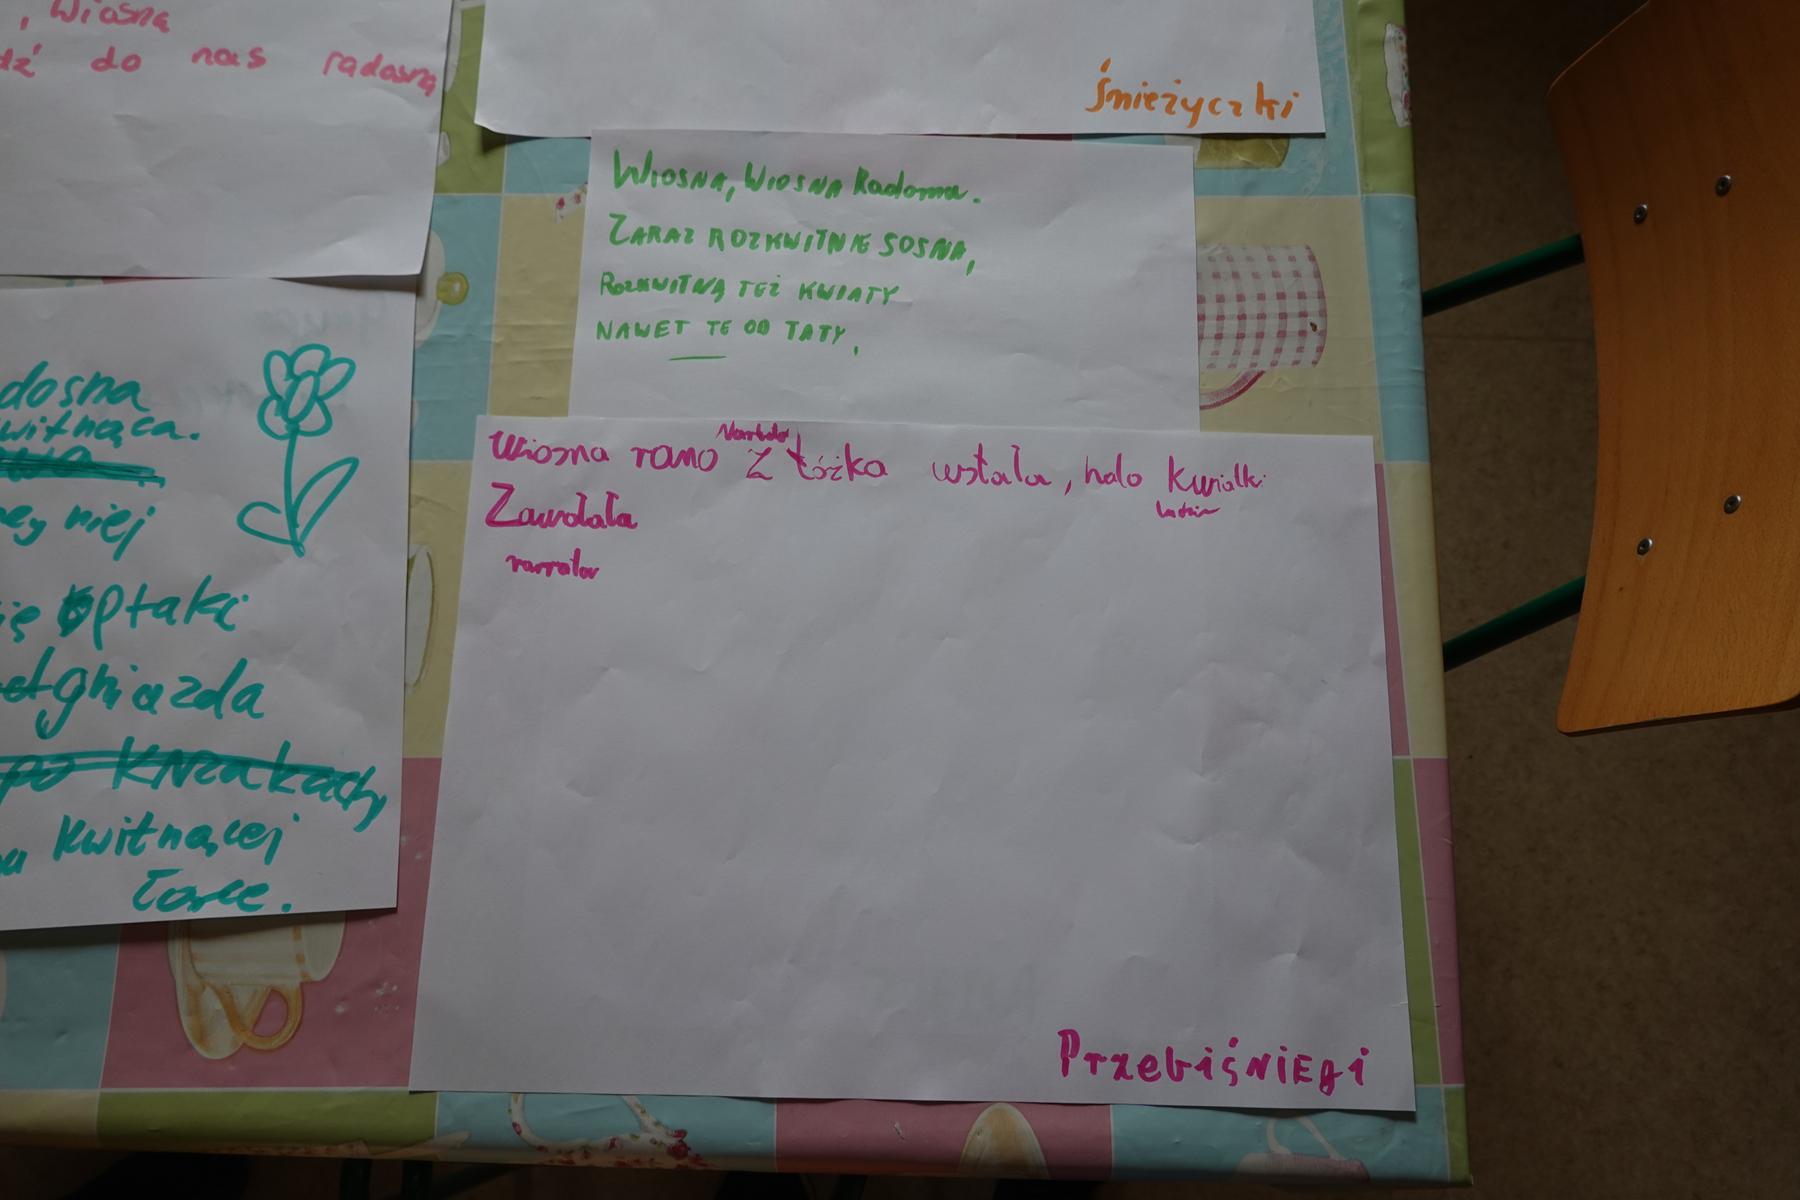 , Wiosna
dź do nas radosną
Śnieżyczki
WIOSNA, WIOSNA Radosna.
ZARAZ ROZKWITNIE SOSNA,
ROZKWITNĄ TEŻ KWIATY
NAWET TE OD TATY.
dosna
witnąca.
niej
ię ptaki
gniazda
po krzakach
kwitnącej
Wiosna rano z łóżka wstała, halo kwiatki
Zawołała
narrator
Przebiśniegi